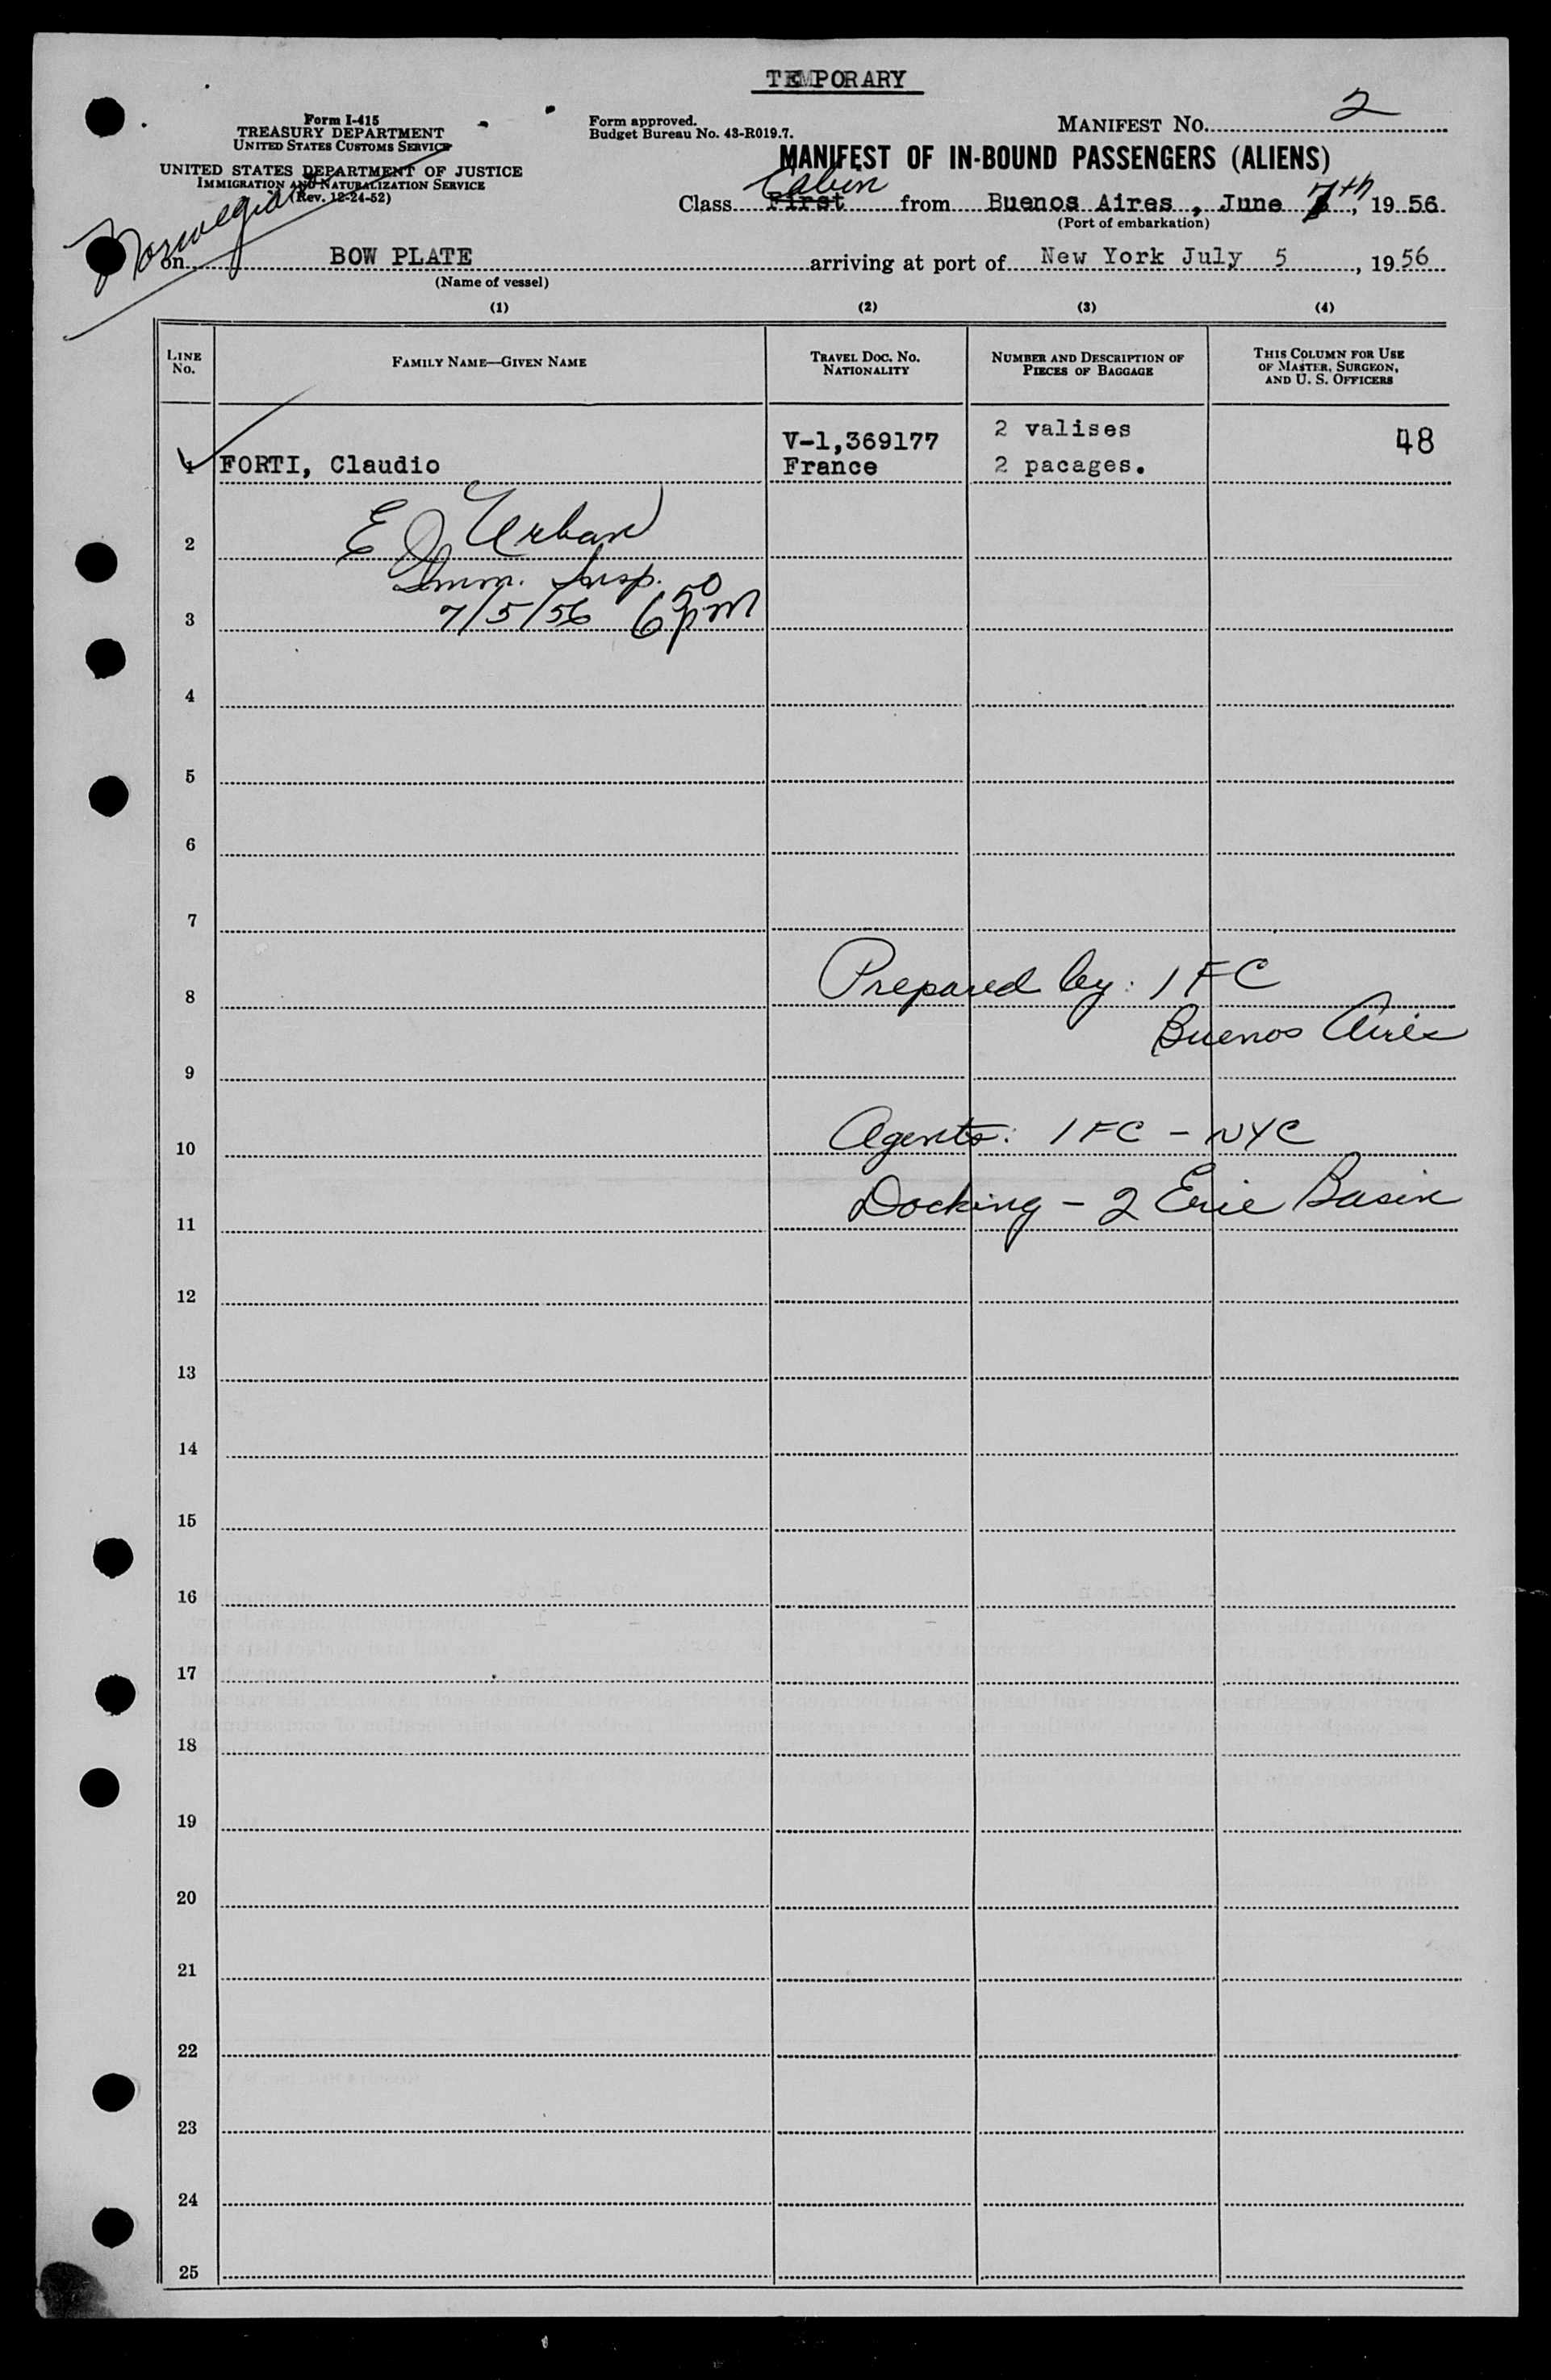 TEMPORARY
Form I-415
TREASURY DEPARTMENT
UNITED STATES CUSTOMS SERVICE
UNITED STATES DEPARTMENT OF JUSTICE
IMMIGRATION AND NATURALIZATION SERVICE
(Rev. 12-24-52)
Form approved.
Budget Bureau No. 43-R019.7.
MANIFEST NO. 2
MANIFEST OF IN-BOUND PASSENGERS (ALIENS)
Cabin
Class First from Buenos Aires, June 7th, 1956
(Port of embarkation)
Norwegian
on BOW PLATE arriving at port of New York July 5, 1956
(Name of vessel)
(1) (2) (3) (4)
LINE NO.
FAMILY NAME—GIVEN NAME
TRAVEL DOC. NO. NATIONALITY
NUMBER AND DESCRIPTION OF PIECES OF BAGGAGE
THIS COLUMN FOR USE OF MASTER, SURGEON, AND U. S. OFFICERS
V-1,369177 2 valises 48
1 FORTI, Claudio France 2 pacages.
2 E J Urban
Imm. Insp.
3 7/5/56 6 50 pm
4
5
6
7
8 Prepared by: IFC
Buenos Aires
9
10 Agents: IFC - NYC
11 Docking - 2 Erie Basin
12
13
14
15
16
17
18
19
20
21
22
23
24
25